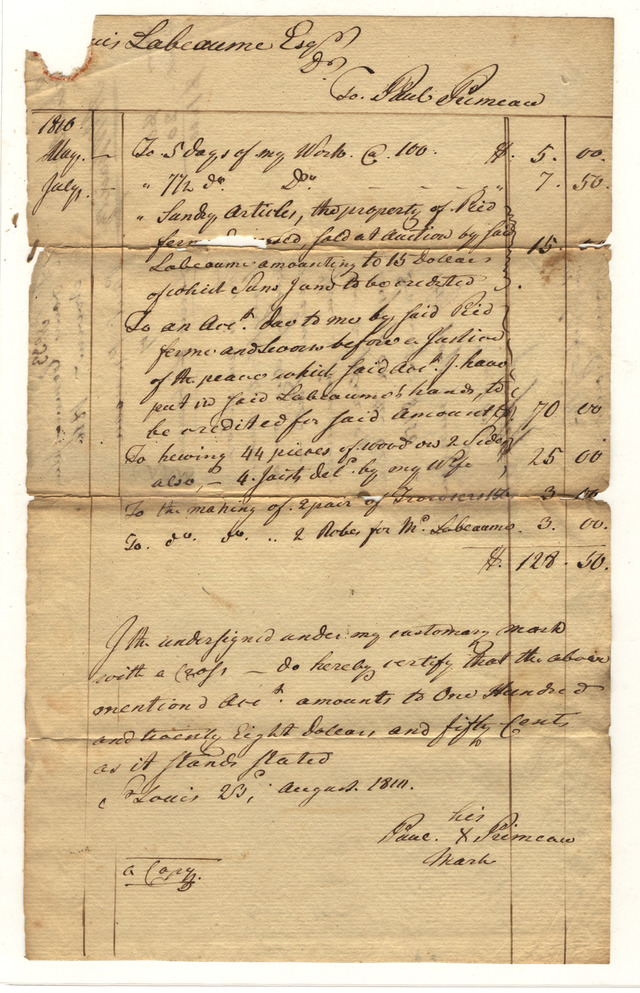 uis Labeaume Esqr
Dr
To Paul Primeau
1810
May, — To 5 days of my Work @ 100. $. 5. 00.
July, — " 7 1/2 do. Do. - - - - " 7. 50.
" Sundry Articles, the property of Reid
ferme sold at Auction by said 15.
Labeaume amounting to 15 Dollars
of which Sum I am to be credited
To an Acct. due to me by said Reid
ferme and before a Justice
of the peace which said Acct. I have
put in said Labeaume's hands, to
be credited for said Amount 70 00
To hewing 44 pieces of wood on 2 Sides
also, — 4 Joists deld. by my Wife 25 00
To the making of 2 pair of Trowsers 3 00
To. do. do. .. 2 Robes for Mr. Labeaume 3. 00.
$. 128. 50.
I the undersigned under my customary mark
with a Cross — do hereby certify that the above
mentiond Acct. amounts to One Hundred
and twenty Eight dollars and fifty Cents
as it stands stated
St. Louis 23d, August. 1811.
his
Paul. X Primeau
Mark
a Copy.